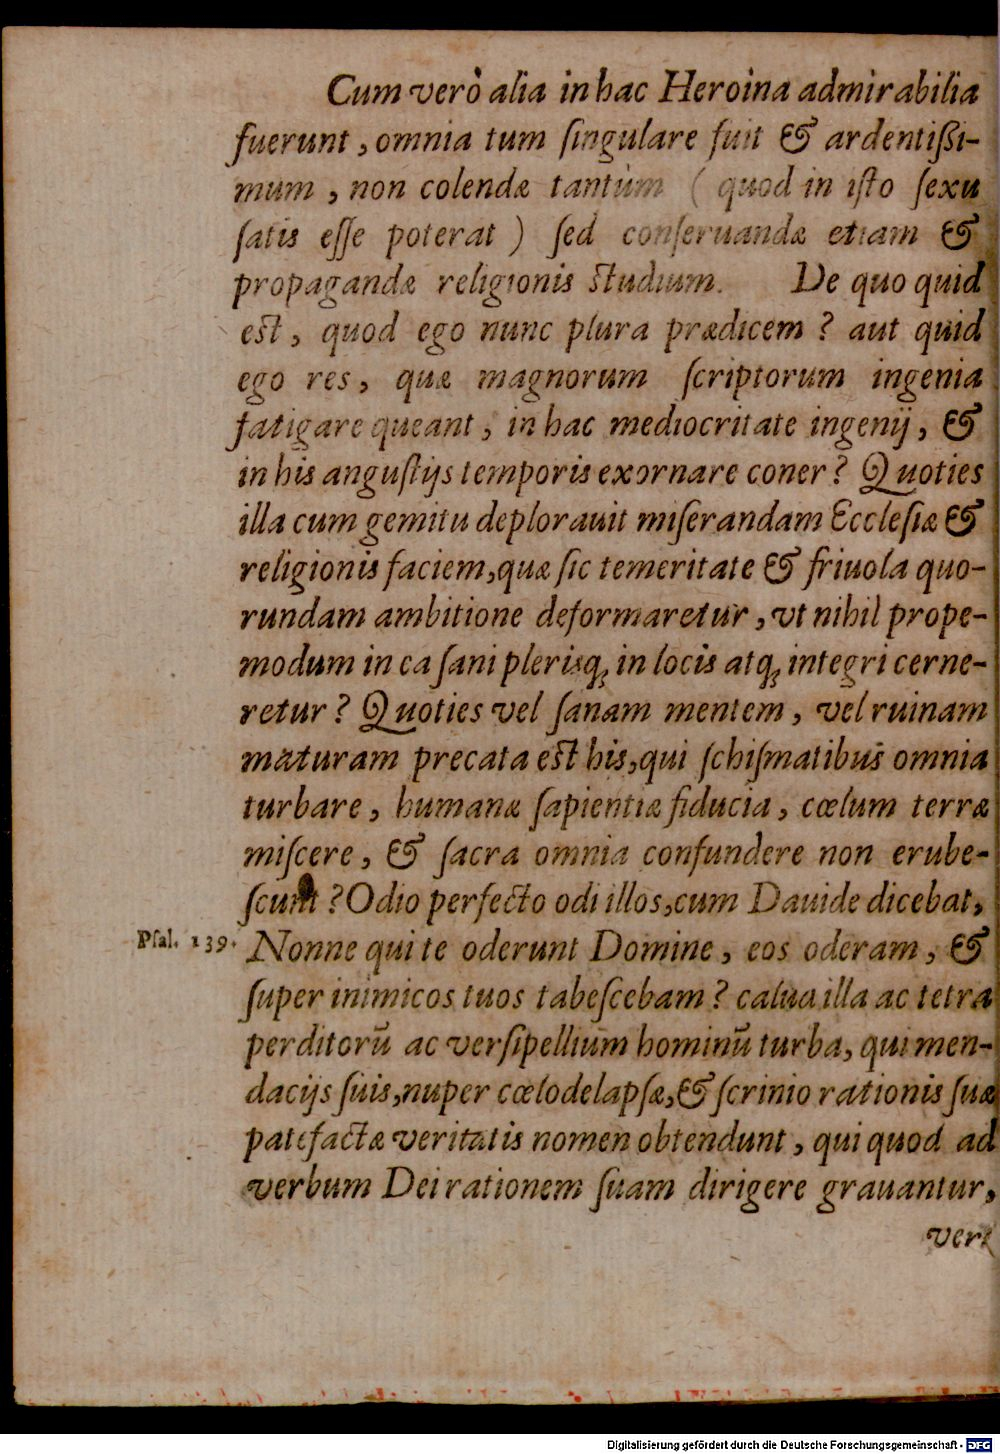 Cum verò alia in hac Heroina admirabilia
fuerunt, omnia tum ſingulare fuit & ardentiſsi-
mum, non colendæ tantùm ( quod in iſto ſexu
ſatis eſſe poterat ) ſed conſeruandæ etiam &
propagandæ religionis ſtudium. De quo quid
eſt, quod ego nunc plura prædicem? aut quid
ego res, quæ magnorum ſcriptorum ingenia
fatigare queant, in hac mediocritate ingenij, &
in his anguſtijs temporis exornare coner? Quoties
illa cum gemitu deplorauit miſerandam Eccleſiæ &
religionis faciem, quæ ſic temeritate & friuola quo-
rundam ambitione deformaretur, vt nihil prope-
modum in ea ſani plerisq; in locis atq; integri cerne-
retur? Quoties vel ſanam mentem, vel ruinam
maturam precata eſt his, qui ſchiſmatibus omnia
turbare, humanæ ſapientiæ fiducia, cœlum terræ
miſcere, & ſacra omnia confundere non erube-
ſcunt? Odio perfecto odi illos, cum Dauide dicebat,
Pſal. 139. Nonne qui te oderunt Domine, eos oderam, &
ſuper inimicos tuos tabeſcebam? calua illa ac tetra
perditorũ ac verſipellium hominũ turba, qui men-
dacijs ſuis, nuper cœlo delapſæ, & ſcrinio rationis ſuæ
patefactæ veritatis nomen obtendunt, qui quod ad
verbum Dei rationem ſuam dirigere grauantur,
Digitalisierung gefördert durch die Deutsche Forschungsgemeinschaft - DFG